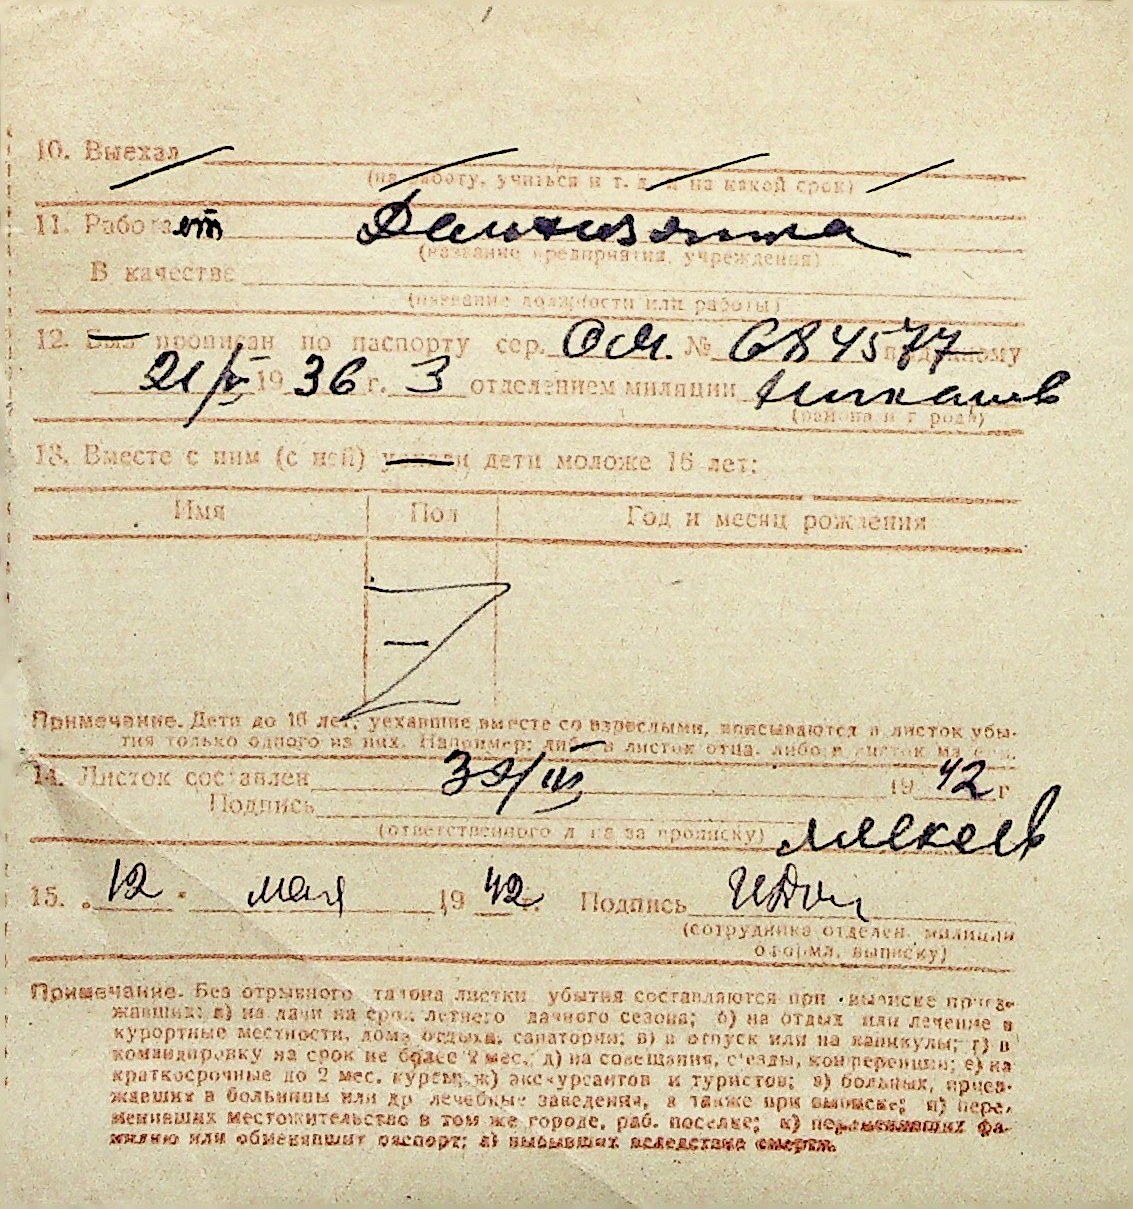 10. Выехал
(на работу, учиться и т. д. и на какой срок)
11. Работает Домохозяйка
(название предприятия, учреждения)
В качестве
(название должности или работы)
12. Был прописан по паспорту сер. ОМ. № 684577 выданному
21/V 1936 г. 3 отделением милиции
(района и города)
13. Вместе с ним (с ней) уехали дети моложе 16 лет:
Имя Пол Год и месяц рождения
—
Примечание. Дети до 16 лет, уехавшие вместе со взрослыми, вписываются в листок убы-
тия только одного из них. Например: либо в листок отца, либо в листок матери.
14. Листок составлен 30/III 1942 г
Подпись
(ответственного лица за прописку)
15. „12" мая 1942 г. Подпись
(сотрудника отделен. милиции
оформл. выписку)
Примечание. Без отрывного талона листки убытия составляются при выписке приез-
жавших: а) на дачи на срок летнего дачного сезона; б) на отдых или лечение в
курортные местности, дома отдыха, санатории; в) в отпуск или на каникулы; г) в
командировку на срок не более 2 мес.; д) на совещания, с'езды, конференции; е) на
краткосрочные до 2 мес. курсы; ж) экскурсантов и туристов; з) больных, приез-
жавших в больницы или др лечебные заведения, а также при выписке; и) пере-
менивших местожительство в том же городе, раб. поселке; к) переменивших фа-
милию или обменявших паспорт; л) выбывших вследствие смерти.